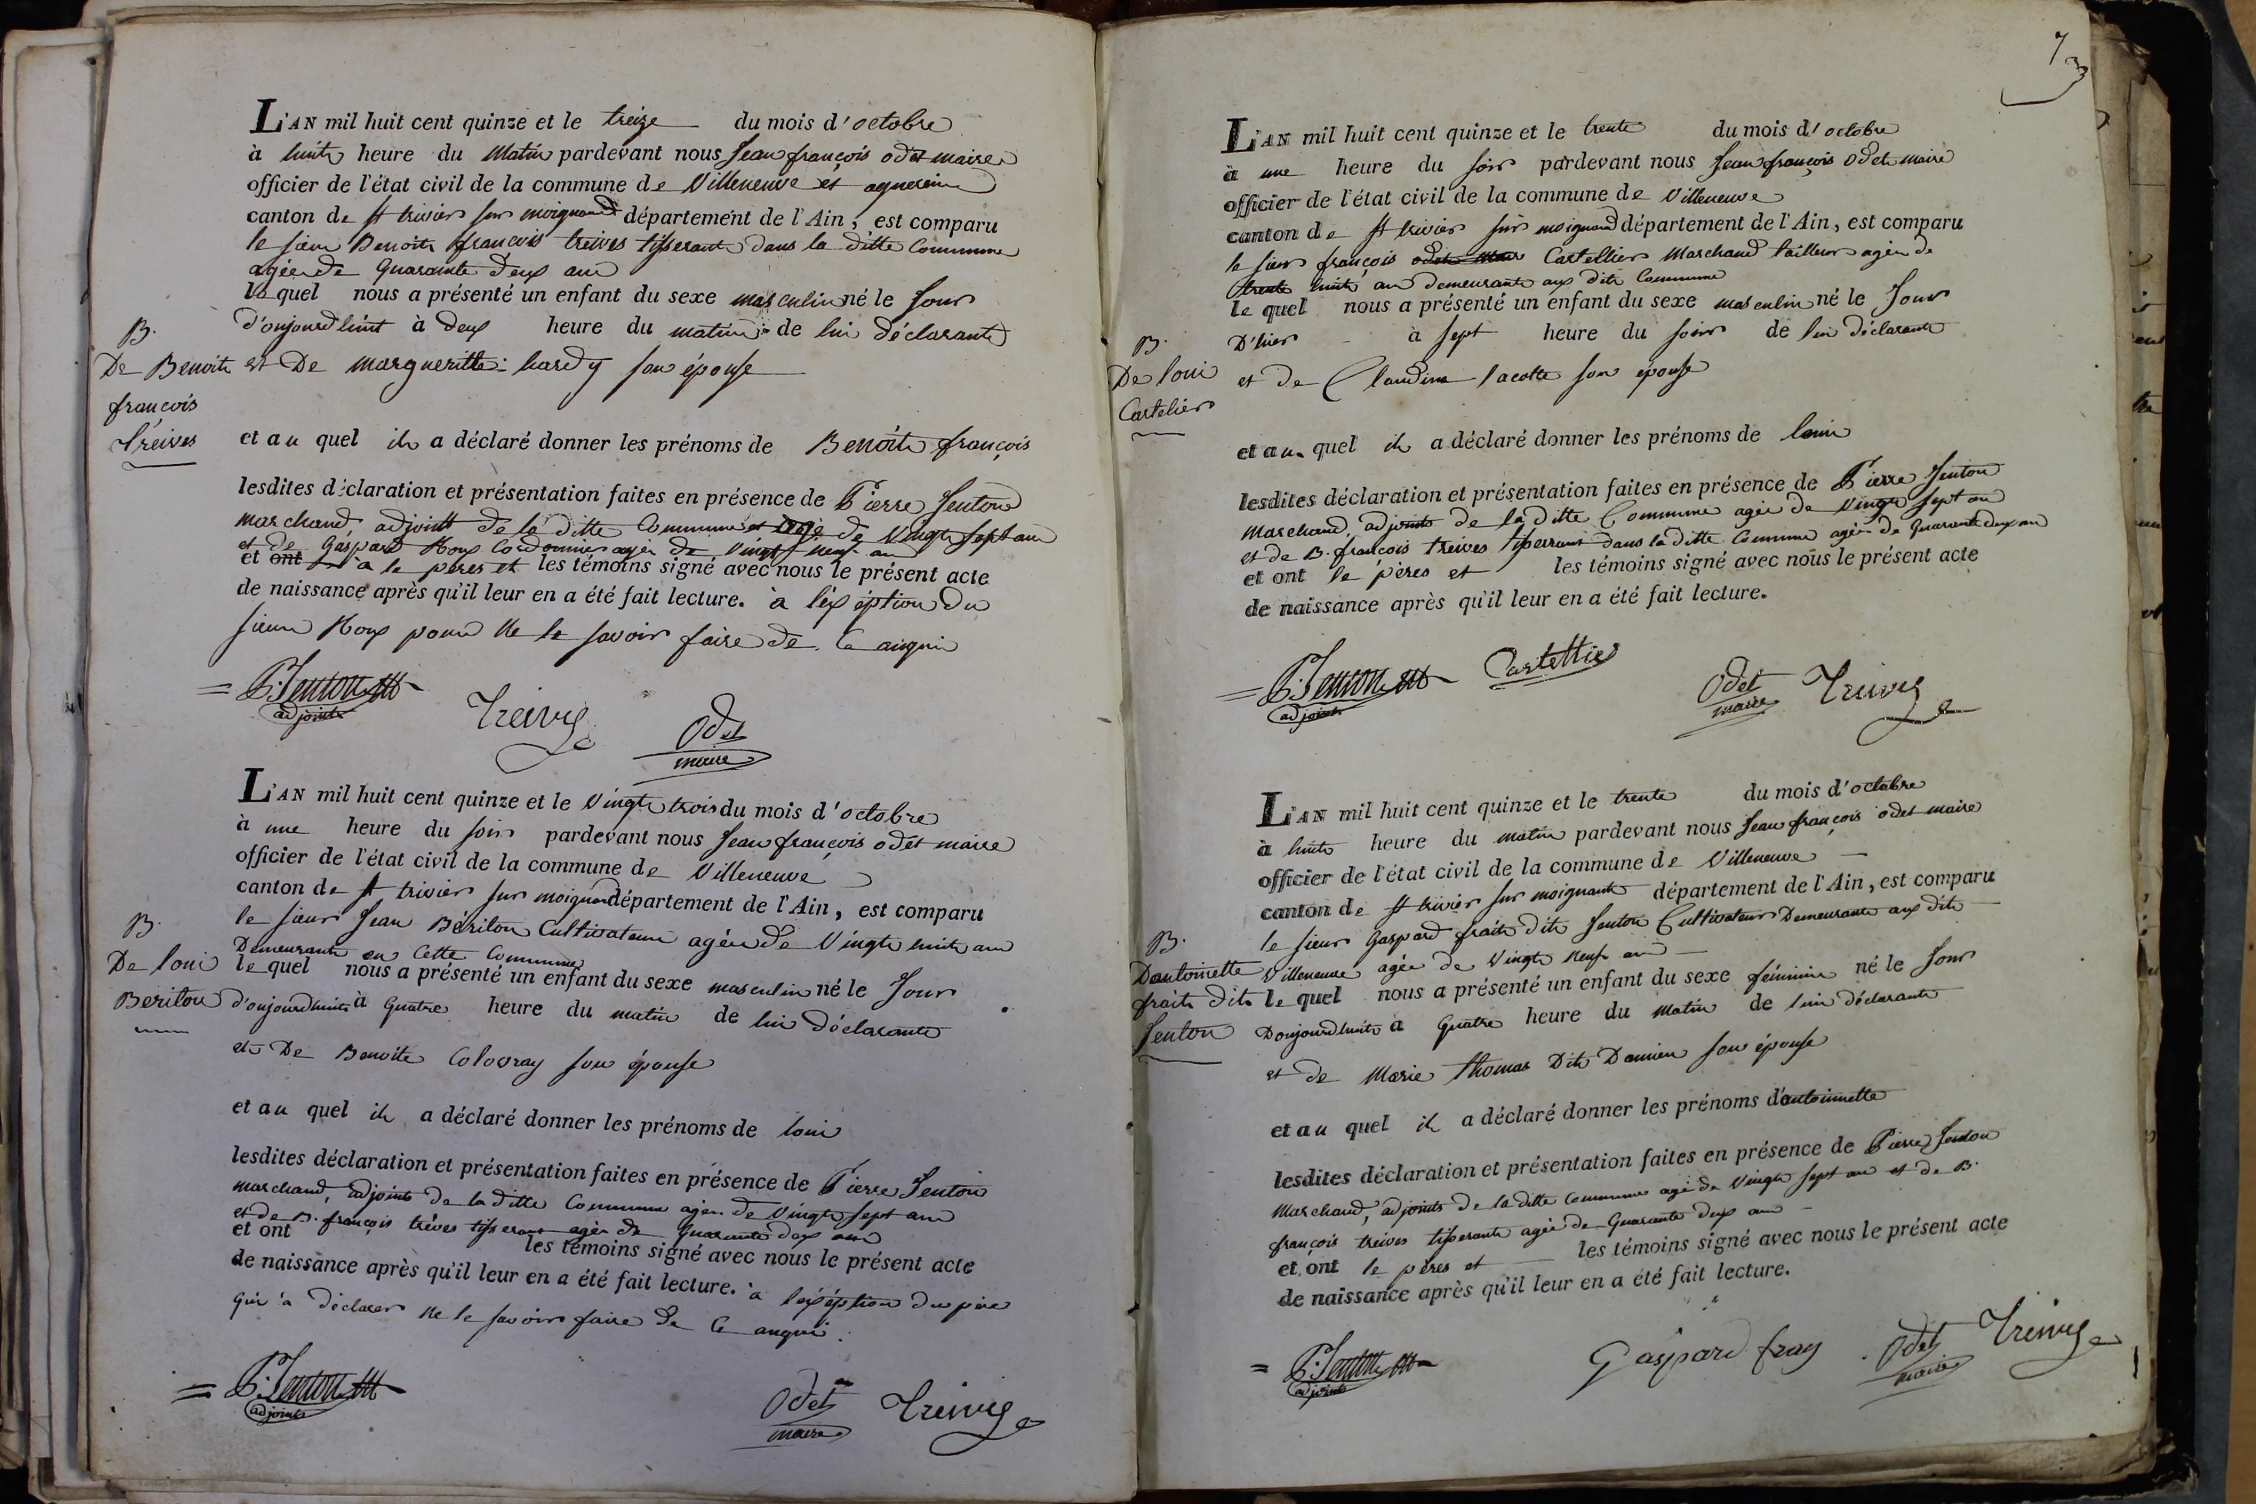 L'AN mil huit cent quinze et le treize du mois d'octobre
à huit heure du matin pardevant nous Jean françois odet maire
officier de l'état civil de la commune de Villeneuve et agnereins
canton de St trivier sur moignand département de l'Ain, est comparu
le sieur Benoit françois treives tisserant dans la ditte Commune
agée de quarante deux ans
le quel nous a présenté un enfant du sexe masculin né le Jour
d'oujourd'huit à deux heure du matin de lui déclarant
et De margueritte hardy son épouse
B.
De Benoit
françois
Treives
et au quel il a déclaré donner les prénoms de Benoit françois
lesdites déclaration et présentation faites en présence de Pierre Jenton
marchand adjoint de la ditte Commune et agé de Vingt sept an
et de Gaspard Roux Cordonnier agée de vingt neuf an
et ont a le pères et les témoins signé avec nous le présent acte
de naissance après qu'il leur en a été fait lecture. à l'exéption du
sieur Roux pour ne le savoir faire de Ce anquis
P. Jenton
adjoint
Treives
Odet
maire
L'AN mil huit cent quinze et le Vingt trois du mois d'octobre
à une heure du soir pardevant nous Jean françois odet maire
officier de l'état civil de la commune de Villeneuve
canton de St trivier sur moignand département de l'Ain, est comparu
le sieur Jean Beriton Cultivateur agée de Vingt huit an
Demeurant en Cette Commune
le quel nous a présenté un enfant du sexe masculin né le Jour
d'oujourdhuit à quatre heure du matin de lui déclarant
et De Benoite Colovray son épouse
B.
De loui
Beriton
et au quel il a déclaré donner les prénoms de loui
lesdites déclaration et présentation faites en présence de Pierre Jenton
marchand, adjoint de la ditte Commune agée de Vingt sept an
et de B. françois trèves tisserant agée de quarante deux ans
et ont les témoins signé avec nous le présent acte
de naissance après qu'il leur en a été fait lecture. à l'exéption du père
qui a déclarer ne le savoir faire de Ce anquis.
P. Jenton
adjoint
Odet
maire
Treives
7
L'AN mil huit cent quinze et le trente du mois d'octobre
à une heure du soir pardevant nous Jean françois Odet maire
officier de l'état civil de la commune de Villeneuve
canton de St trivier sur moignand département de l'Ain, est comparu
le sieur françois odet maire Castellier Marchand tailleur agée de
trente huit an demeurant aux dit Commune
le quel nous a présenté un enfant du sexe masculin né le Jour
D'hier à sept heure du soir de lui déclarant
et de Claudine lacotte son épouse
B.
De loui
Castelier
et au quel il a déclaré donner les prénoms de loui
lesdites déclaration et présentation faites en présence de Pierre Jenton
Marchand, adjoint de la ditte Commune agée de Vingt sept an
et de B. françois treives tisserant dans la ditte Commune agée de quarante deux an
et ont le pères et les témoins signé avec nous le présent acte
de naissance après qu'il leur en a été fait lecture.
P. Jenton
adjoint
Castellier
Odet
maire
Treives
L'AN mil huit cent quinze et le trente du mois d'octobre
à huit heure du matin pardevant nous Jean françois odet maire
officier de l'état civil de la commune de Villeneuve
canton de St trivier sur moignant département de l'Ain, est comparu
le sieur Gaspard frait dit Jenton Cultivateur Demeurant aux dit
Villeneuve agée de Vingt neuf an
le quel nous a présenté un enfant du sexe féminin né le Jour
Doujourdhuit à quatre heure du matin de lui déclarant
et de Marie thomas Dit Damien son épouse
B.
Dantoinette
frait dit
Jenton
et au quel il a déclaré donner les prénoms d'antoinette
lesdites déclaration et présentation faites en présence de Pierre Jenton
Marchand, adjoint de la ditte Commune agé de Vingt sept an et de B.
françois treives tisserant agée de quarante deux an
et ont le pères et les témoins signé avec nous le présent acte
de naissance après qu'il leur en a été fait lecture.
P. Jenton
adjoint
Gaspard fray
Odet
maire
Treives